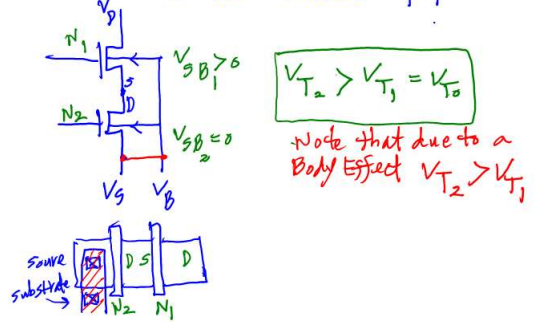 V_D
N1
V_SB1 > 0
S
D
N2
V_SB2 = 0
V_S V_B
V_T2 > V_T1 = V_T0
Note that due to a
Body Effect V_T2 > V_T1
Soure
substrate
D S D
N2 N1